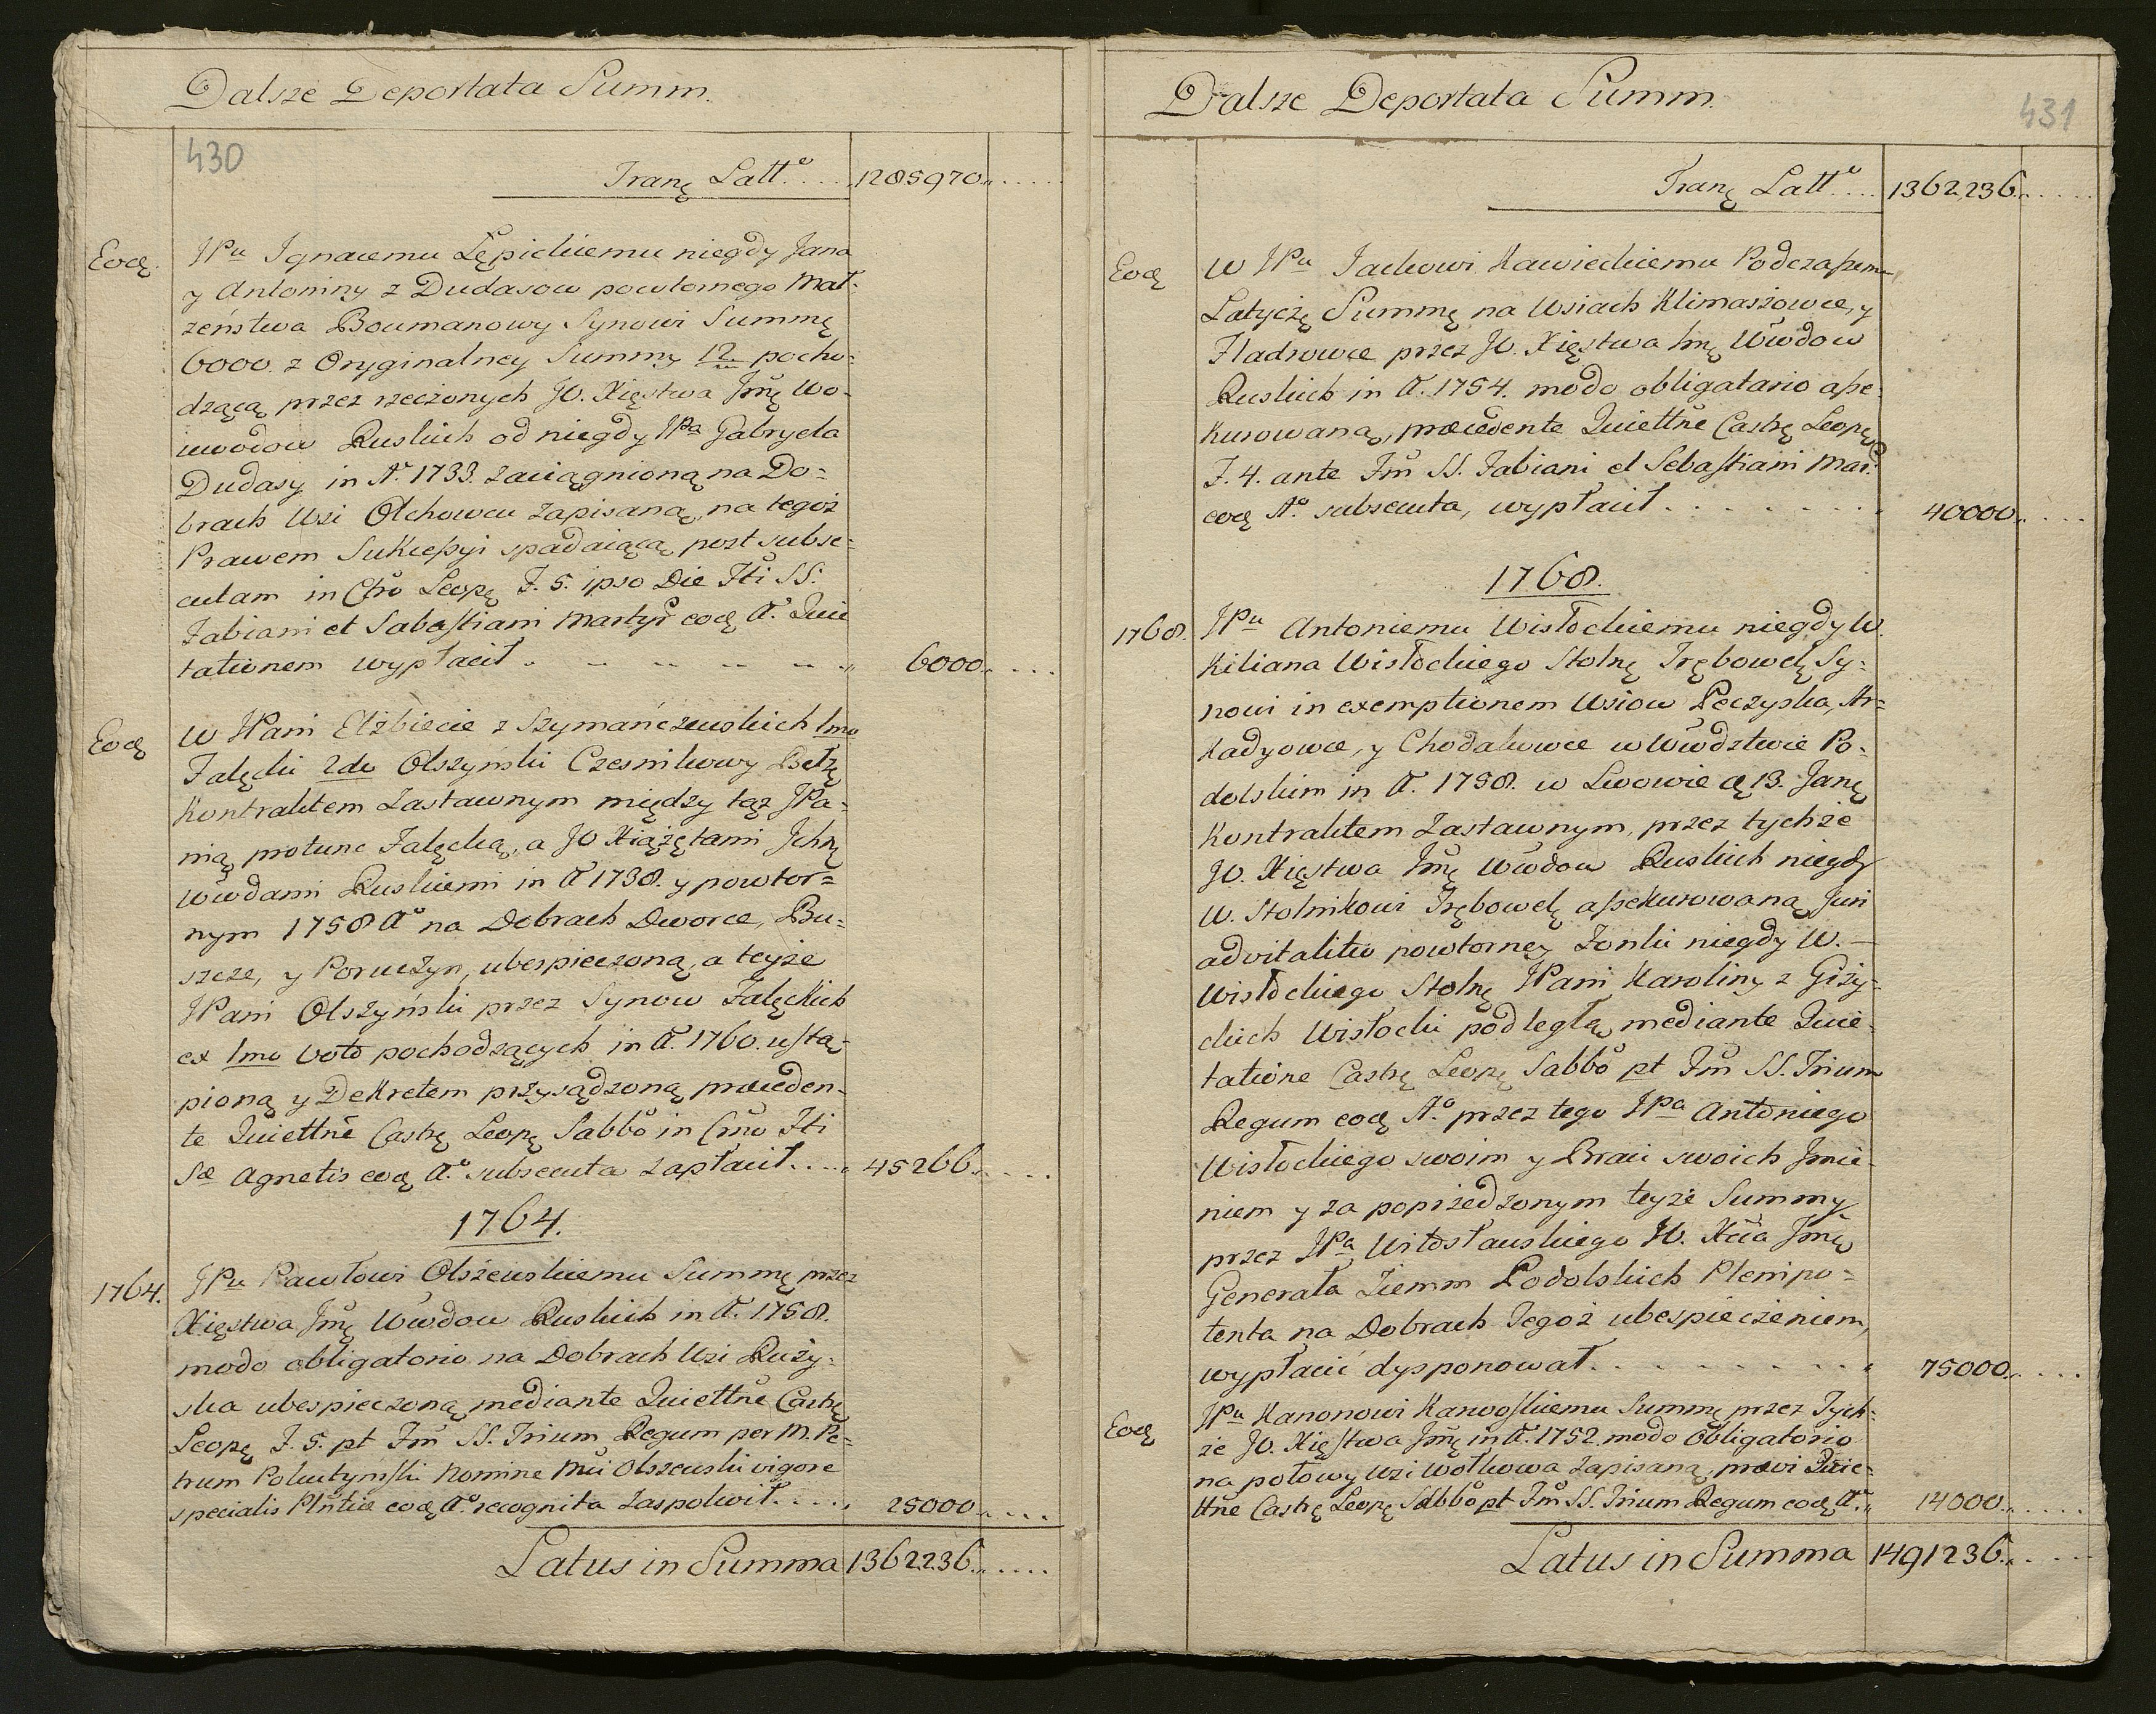 Dalsze Deportata Summ.
430
Tranę Latt.º .... 1285970.. .....
Eodę. JPu Ignacemu Lępickiemu niegdy Jana
y Antoniny z Dudasow powtornego Mał-
zeństwa Boumanowy Synowi Summę
6000. z Oryginalney Summy 12m pocho-
dzącą, przez rzeczonych JO. Xięstwa Jmę Wo-
iewodow Ruskich od niegdy JPa Gabryela
Dudasy in Aº 1733. zaciągnioną na Do=
brach Wsi Olchowcu zapisaną, na tegoż
Prawem Sukcessyi spadaiącą, post subse-
cutam in Cstro Leopę F. 5. ipso Die Fti SS.
Fabiani et Sabastiani Martyr eodę Aº. Quie
tationem wypłacił . .. .. .. .. .. 6000.. ...
Eodę W JPani Elżbiecie z Szymańczewskich 1mo
Falęcki 2do Olszyński Czesnikowy Bełzę
Kontraktem Zastawnym między tąż JPa-
nią protunc Falęcką, a JO Xiążętami Jchę
Wwdami Ruskiemi in Aº 1738. y powtor=
nym 1758 Aº na Dobrach Dworce, Bu-
szcze, y Poruczyn, ubespieczoną, a teyże
JPani Olszyński przez Synow Falęckich
ex 1mo Voto pochodzących in Aº. 1760. ustą-
pioną y Dekretem przysądzoną praeceden-
te Quiettne Castrę Leopę Sabbo in Cmo Fti
Sae Agnetis eodę Aº subsecuta zapłacił.... 45266. ....
1764.
1764. JPu Pawłowi Olszewskiemu Summę przez
Xięstwa Jmę Wwdow Ruskich in Aº. 1758.
modo obligatorio na Dobrach Wsi Ruży-
ska ubespieczoną, mediante Quiettne Castrę
Leopę F. 5. pt Fm SS. Trium Regum per M. Pe=
trum Polutyński Nomine Mci Olszewski vigore
specialis Plntiae eodę Aº. recognita zaspokoił..... 25000. ....
Latus in Summa 1362236. .....
Dalsze Deportata Summ.
431
Tranę Latt.º ... 1362236. .....
Eodę W JPu Jackowi Kawieckiemu Podczaszemu
Latyczę Summę na Wsiach Klimaszowce, y
Hladzowce przez JO. Xięstwa Jmę Wwdow
Ruskich in Aº. 1754. modo obligatorio asse-
kurowaną, praecedente Quiettne Castrę Leopę
F. 4. ante Fm SS. Fabiani et Sebastiani Mar.
eodę Aº. subsecuta, wypłacił . . . . . . . 40000.. ...
1768.
1768. JPu Antoniemu Wisłockiemu niegdy W.
Kiliana Wisłockiego Stolnę Trębowelę Sy-
nowi in exemptionem Wsiow Peczyska, Ar=
kadyowce, y Chodakowce w Wwdztwie Po-
dolskim in Aº. 1758. w Lwowie dę 13. Janę
Kontraktem Zastawnym, przez tychże
JO. Xięstwa Jmę Wwdow Ruskich niegdy
W. Stolnikowi Trębowelę assekurowaną Juri
advitalitio powtorney Żonki niegdy W. —
Wisłockiego Stolnę JPani Karoliny z Giży-
ckich Wisłocki podległą, mediante Quie-
tatione Castrę Leopę Sabbo pt Fm SS. Trium
Regum eodę Aº. przez tego JPa Antoniego
Wisłockiego swoim y Braci swoich Jmie-
niem y za poprzedzonym teyże Summy
przez JPa Witosławskiego JO. Xcia Jmę
Generała Ziemm Podolskich Plenipo=
tenta na Dobrach Tegoż ubespieczeniem,
wypłacić dysponował . . . . . . . . . 75000. ....
Eodę JPu Kanonowi Karwoskiemu Summę przez Tych-
że JO. Xięstwa Jmę in Aº. 1752. modo Obligatorio
na połowy Wsi Wołkowa zapisaną, praevi Quie-
ttne Castrę Leopę Sabbo pt Fm SS. Trium Regum eodę Aº.. 14000.. .....
Latus in Summa 1491236. .....